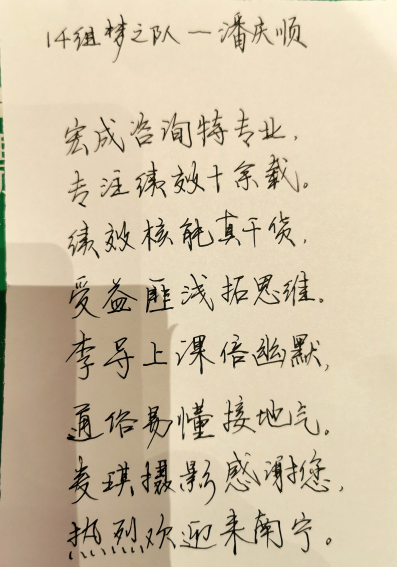 14组梦之队—潘庆顺
宏成咨询特专业，
专注绩效十余载。
绩效核能真干货，
受益匪浅拓思维。
李导上课倍幽默，
通俗易懂接地气。
麦琪摄影感谢您，
热烈欢迎来南宁。